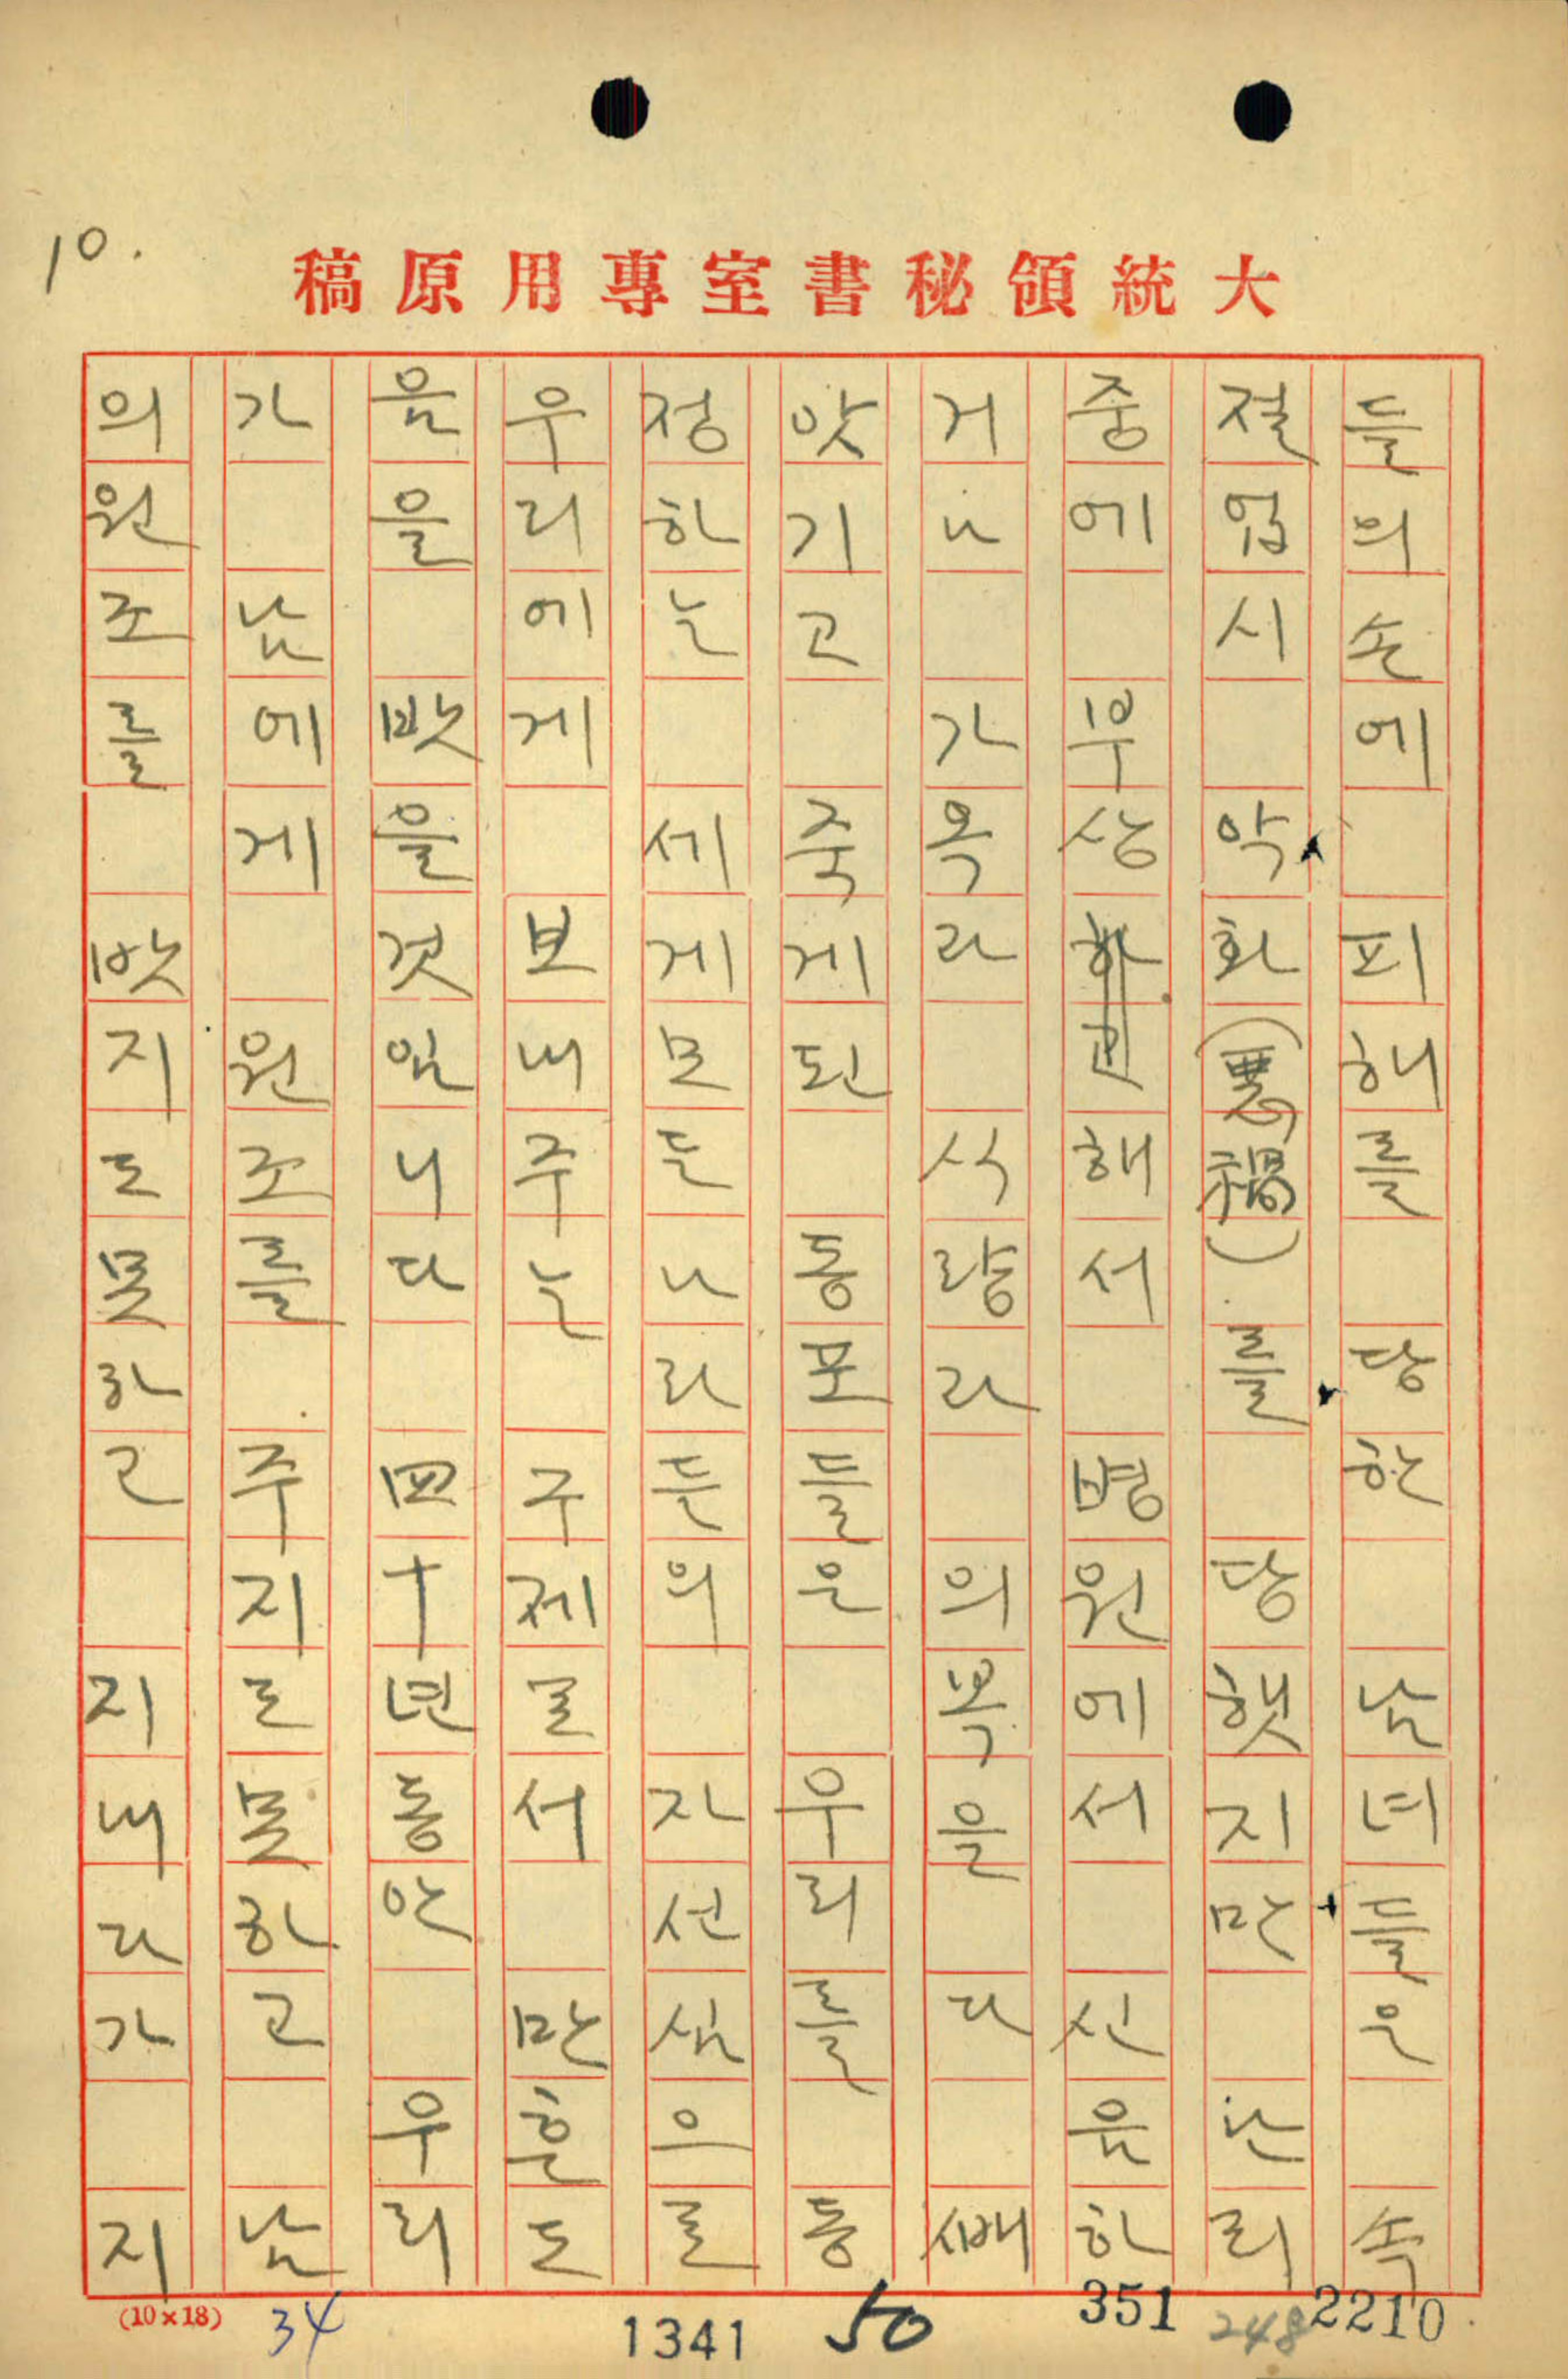 10.
大統領秘書室專用原稿
들의손에 피해를 당한 남녀들은 속
절업시 악화(悪禍)를 당햇지만 난리
중에 부상해서 병원에서 신음하
거나 가옥라 식량라 의복을 다 쌔
앗기고 죽게된 동포들은 우리를 동
정하는 세게모든나라든의 자선심으로
우리에게 보내주는 구제로서 만흔도
음을 밧을것임니다 四十년동안 우리
가 남에게 원조를 주지도못하고 남
의원조를 밧지도못하고 지내다가 지
(10×18)
34
1341
50
351
248
2210